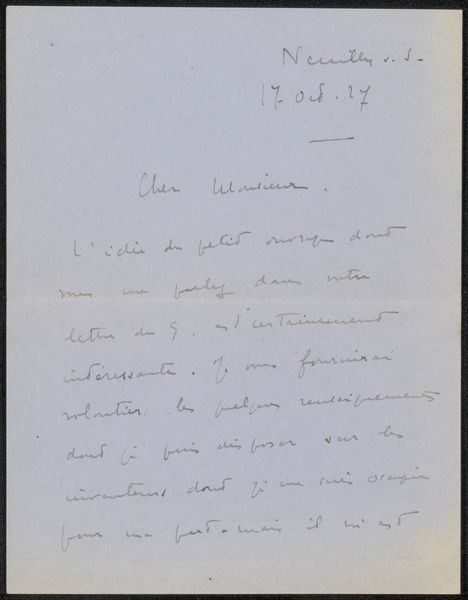 Neuilly s. S.
17 Oct. 27
Cher Monsieur.
L'idée du petit ouvrage dont
vous me parlez dans votre
lettre du 9, est certainement
intéressante. Je vous fournirai
volontiers les quelques renseignements
dont je puis disposer sur les
inventeurs dont je me suis occupée
pour ma part - mais il m'est